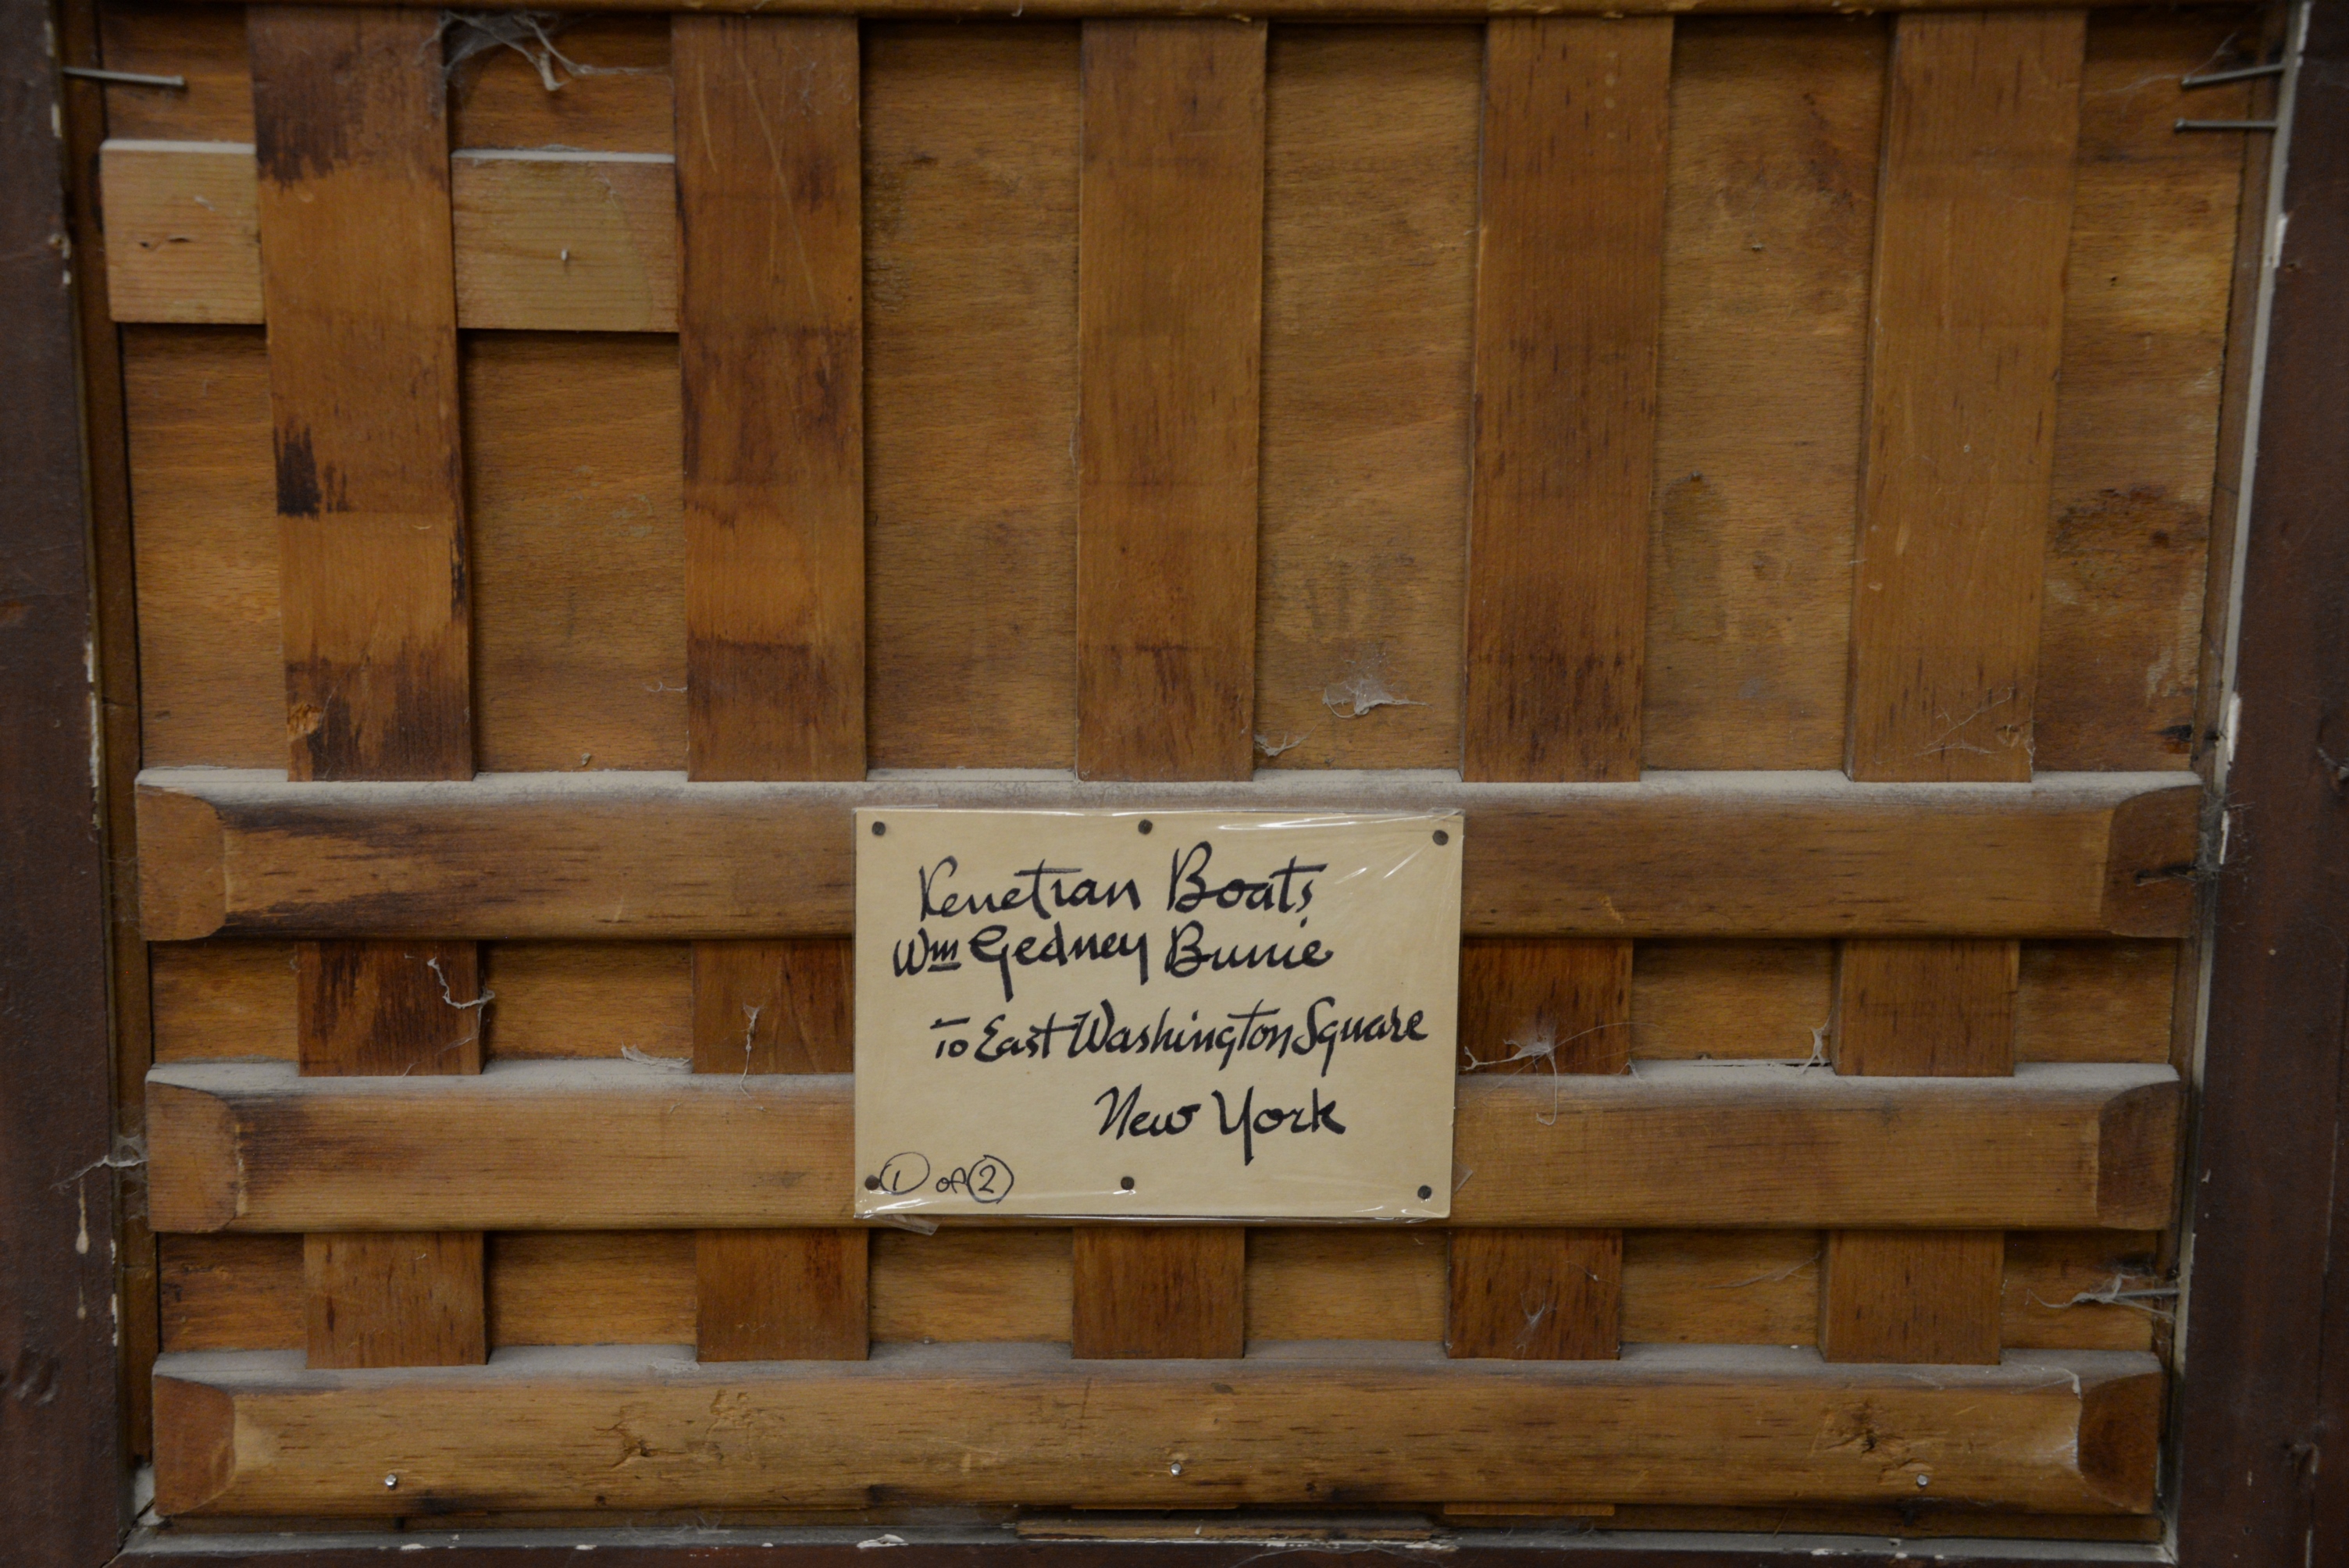 Venetian Boats
Wm Gedney Bunce
To East Washington Square
New York
1 of 2